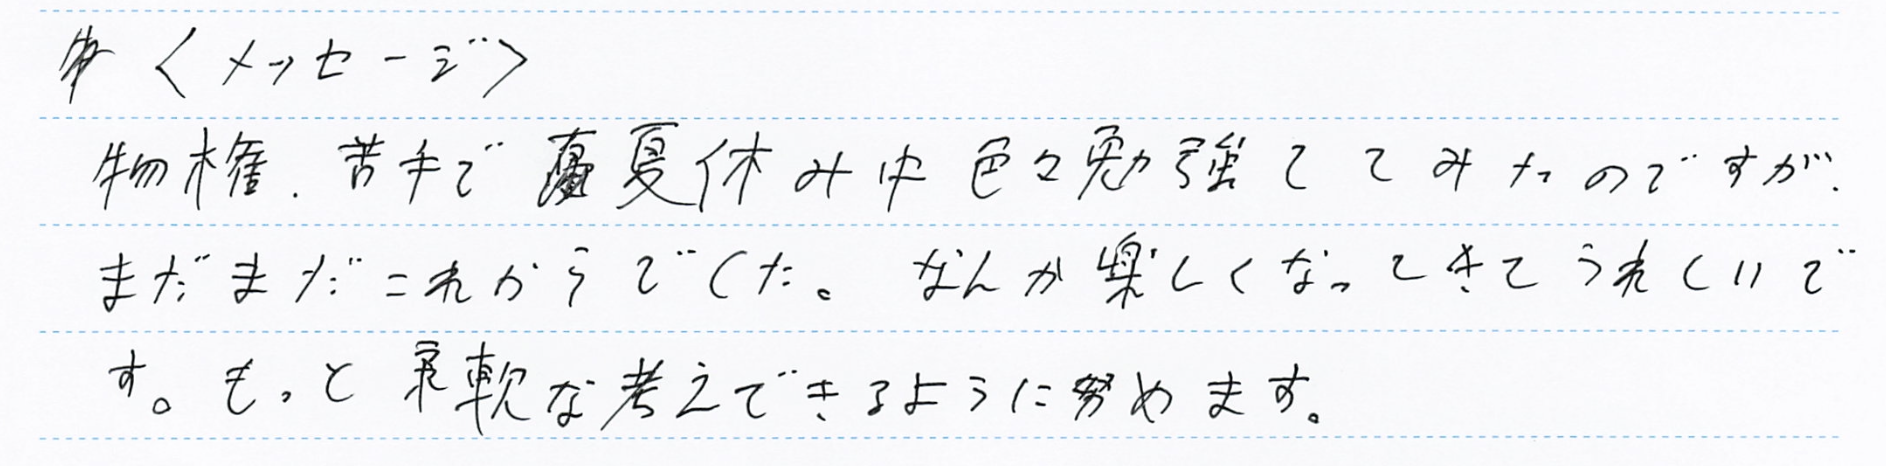 〈メッセージ〉
物権、苦手で夏休み中色々勉強してみたのですが、
まだまだこれからでした。なんか楽しくなってきてうれしいで
す。もっと柔軟な考えできるように努めます。